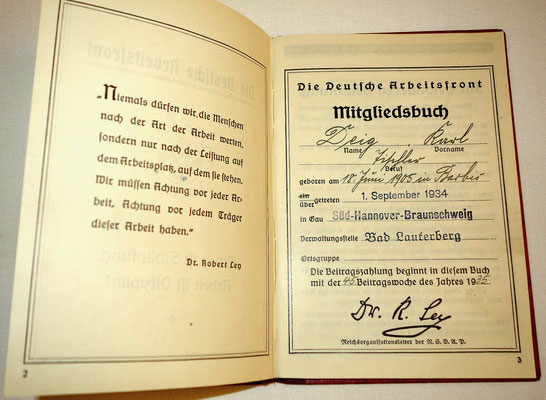 „Niemals dürfen wir die Menschen
nach der Art der Arbeit werten,
sondern nur nach der Leistung auf
dem Arbeitsplatz, auf dem sie stehen.
Wir müssen Achtung vor jeder Ar-
beit, Achtung vor jedem Träger
dieser Arbeit haben.“
Dr. Robert Ley
2
Die Deutsche Arbeitsfront
Mitgliedsbuch
Deig Karl
Name Vorname
Tischler
Beruf
geboren am 18. Juni 1905 in Barbis
ein
über getreten 1. September 1934
in Gau Süd-Hannover-Braunschweig
Verwaltungsstelle Bad Lauterberg
Ortsgruppe
Die Beitragszahlung beginnt in diesem Buch
mit der Beitragswoche des Jahres 1935
Dr. R. Ley
Reichsorganisationsleiter der N.S.D.A.P.
3